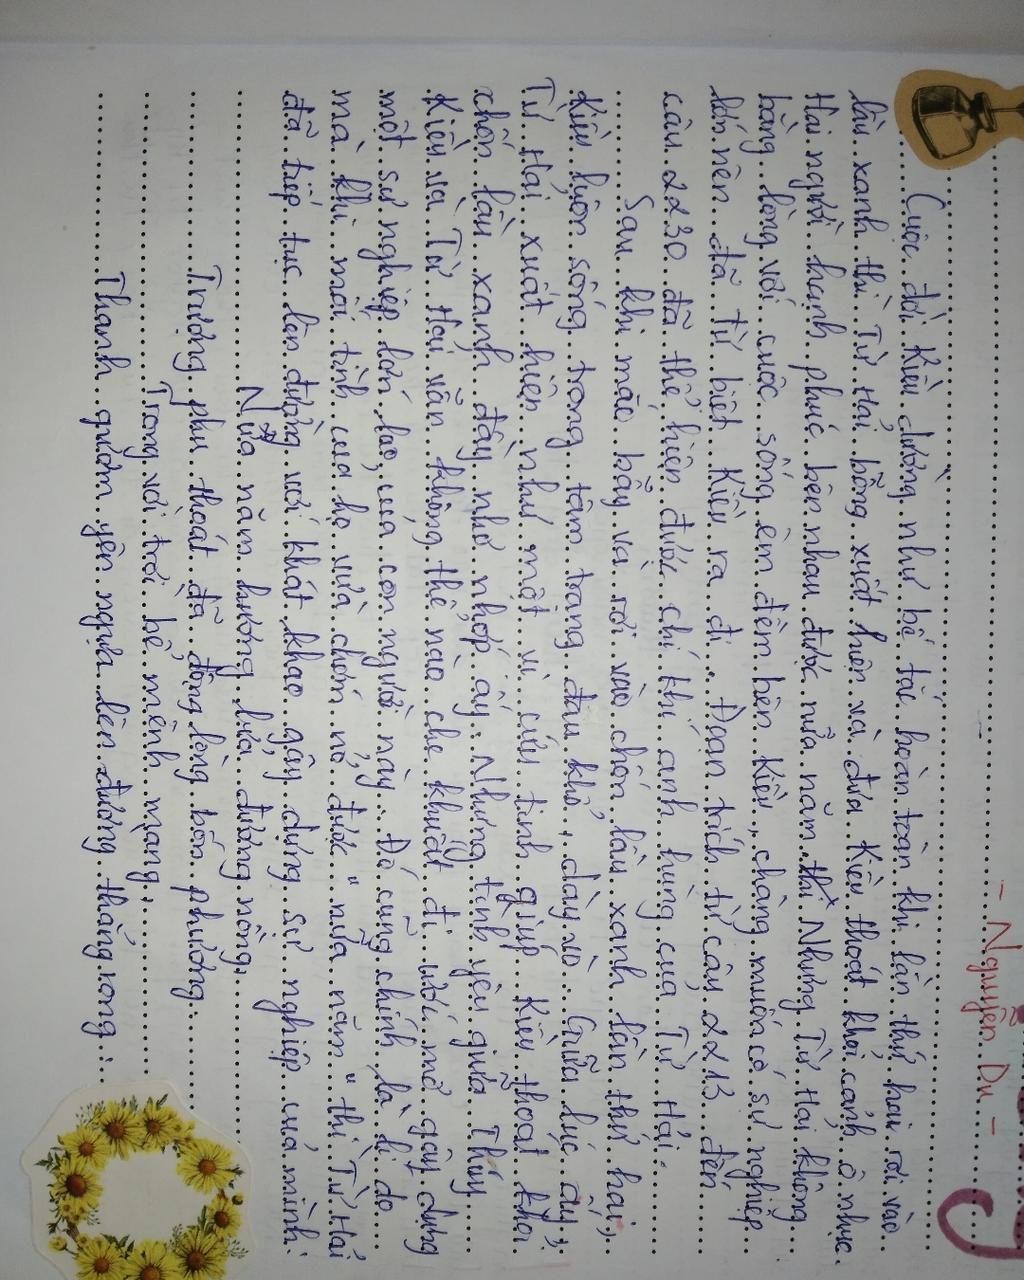 - Nguyễn Du -
Cuộc đời Kiều dường như bế tắc hoàn toàn khi lần thứ hai rơi vào
lầu xanh thì Từ Hải bỗng xuất hiện và đưa Kiều thoát khỏi cảnh ô nhục.
Hai người hạnh phúc bên nhau được nửa năm thì Nhưng Từ Hải không
bằng lòng với cuộc sống êm đềm bên Kiều, chàng muốn có sự nghiệp
lớn nên đã từ biệt Kiều ra đi. Đoạn trích từ câu 2213 đến
câu 2230 đã thể hiện được chí khí anh hùng của Từ Hải.
Sau khi mắc bẫy và rơi vào chốn lầu xanh lần thứ hai,
Kiều luôn sống trong tâm trạng đau khổ, dày vò. Giữa lúc ấy,
Từ Hải xuất hiện như một vị cứu tinh giúp Kiều thoát khỏi
chốn lầu xanh đầy nhơ nhớp ấy. Nhưng tình yêu giữa Thúy
Kiều và Từ Hải vẫn không thể nào che khuất đi ước mơ gây dựng
một sự nghiệp lớn lao của con người này. Đó cũng chính là lí do
mà khi mối tình của họ vừa chớm nở được "nửa năm" thì Từ Hải
đã tiếp tục lên đường với khát khao gây dựng sự nghiệp của mình:
Nửa năm hương lửa đương nồng,
Trượng phu thoắt đã động lòng bốn phương.
Trong vời trời bể mênh mang,
Thanh gươm yên ngựa lên đường thẳng rong.